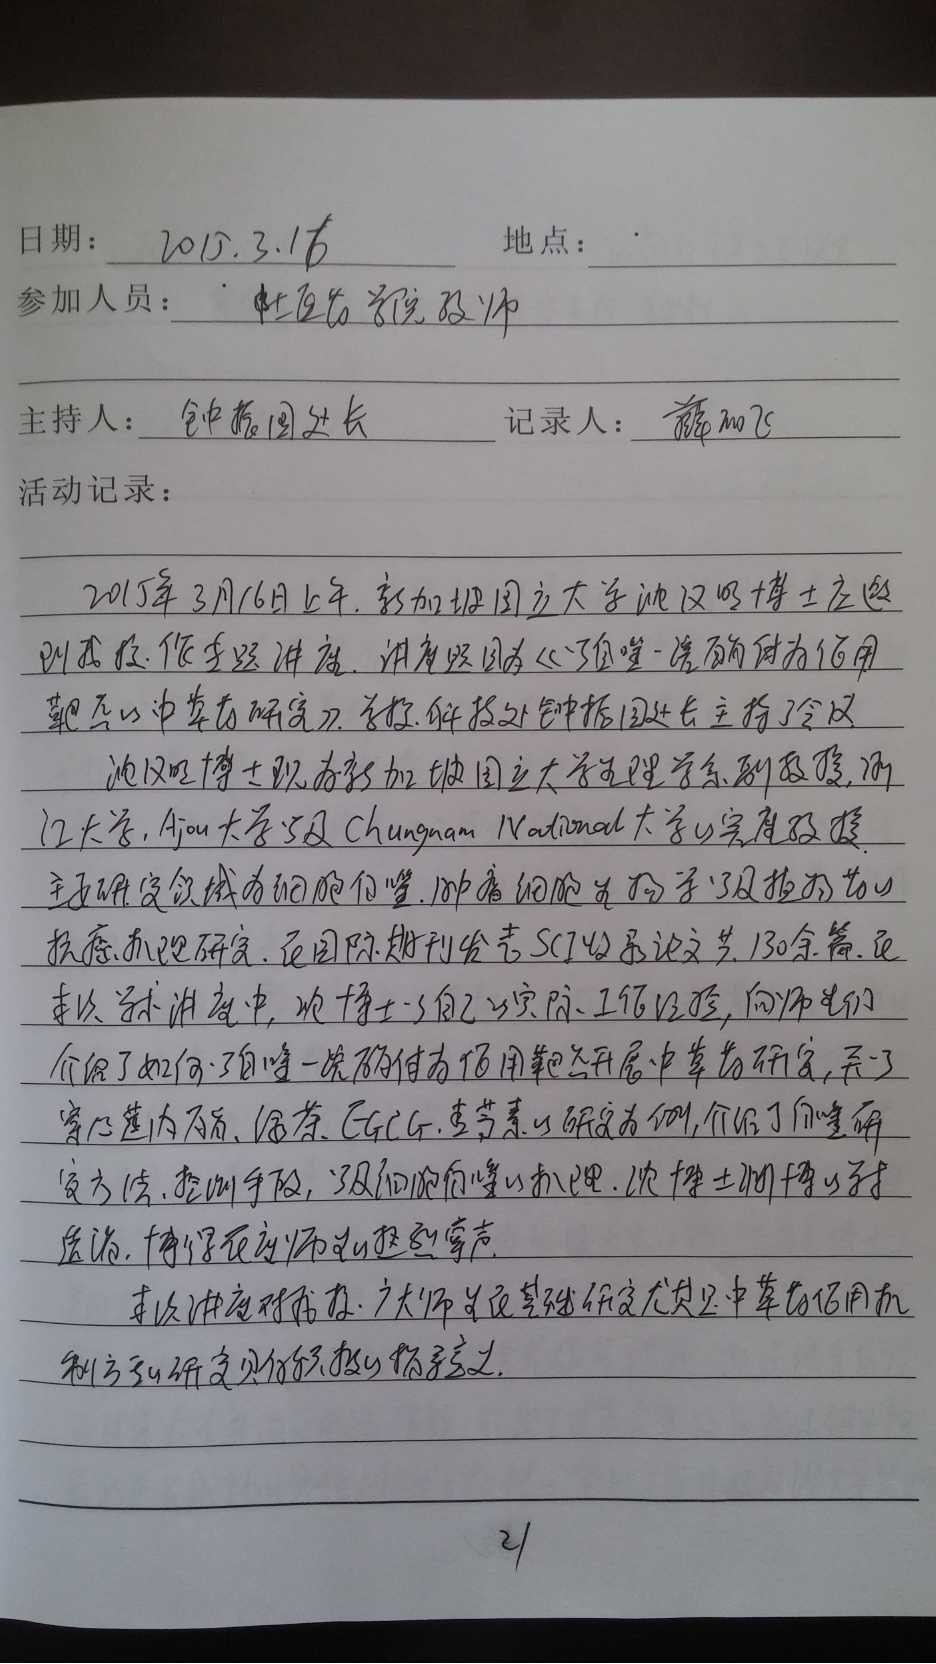 日期： 2015.3.16 地点：
参加人员： 学院教师
主持人： 钟振国处长 记录人： 薛
活动记录：
2015年3月16日上午，新加坡国立大学沈汉明博士应邀
到我校作专题讲座，讲座题目为《以自噬-溶酶体为作用
靶点的中草药研究》，学校科技处钟振国处长主持了会议
沈汉明博士现为新加坡国立大学生理学系副教授，浙
江大学，Ajou大学以及Chungnam National大学的客座教授，
主要研究领域为细胞自噬，肿瘤细胞生物学以及植物药的
抗癌机理研究，在国际期刊发表SCI收录论文共130余篇，在
本次学术讲座中，沈博士以自己的实际工作经验，向师生们
介绍了如何以自噬-溶酶体为作用靶点开展中草药研究，并以
穿心莲内酯、绿茶EGCG、 素的研究为例，介绍了自噬研
究方法、检测手段，以及细胞自噬的机理，沈博士渊博的学术
造诣，博得在座师生的热烈掌声
本次讲座对我校广大师生在基础研究尤其是中草药作用机
制方面的研究具有积极的指导意义。
21